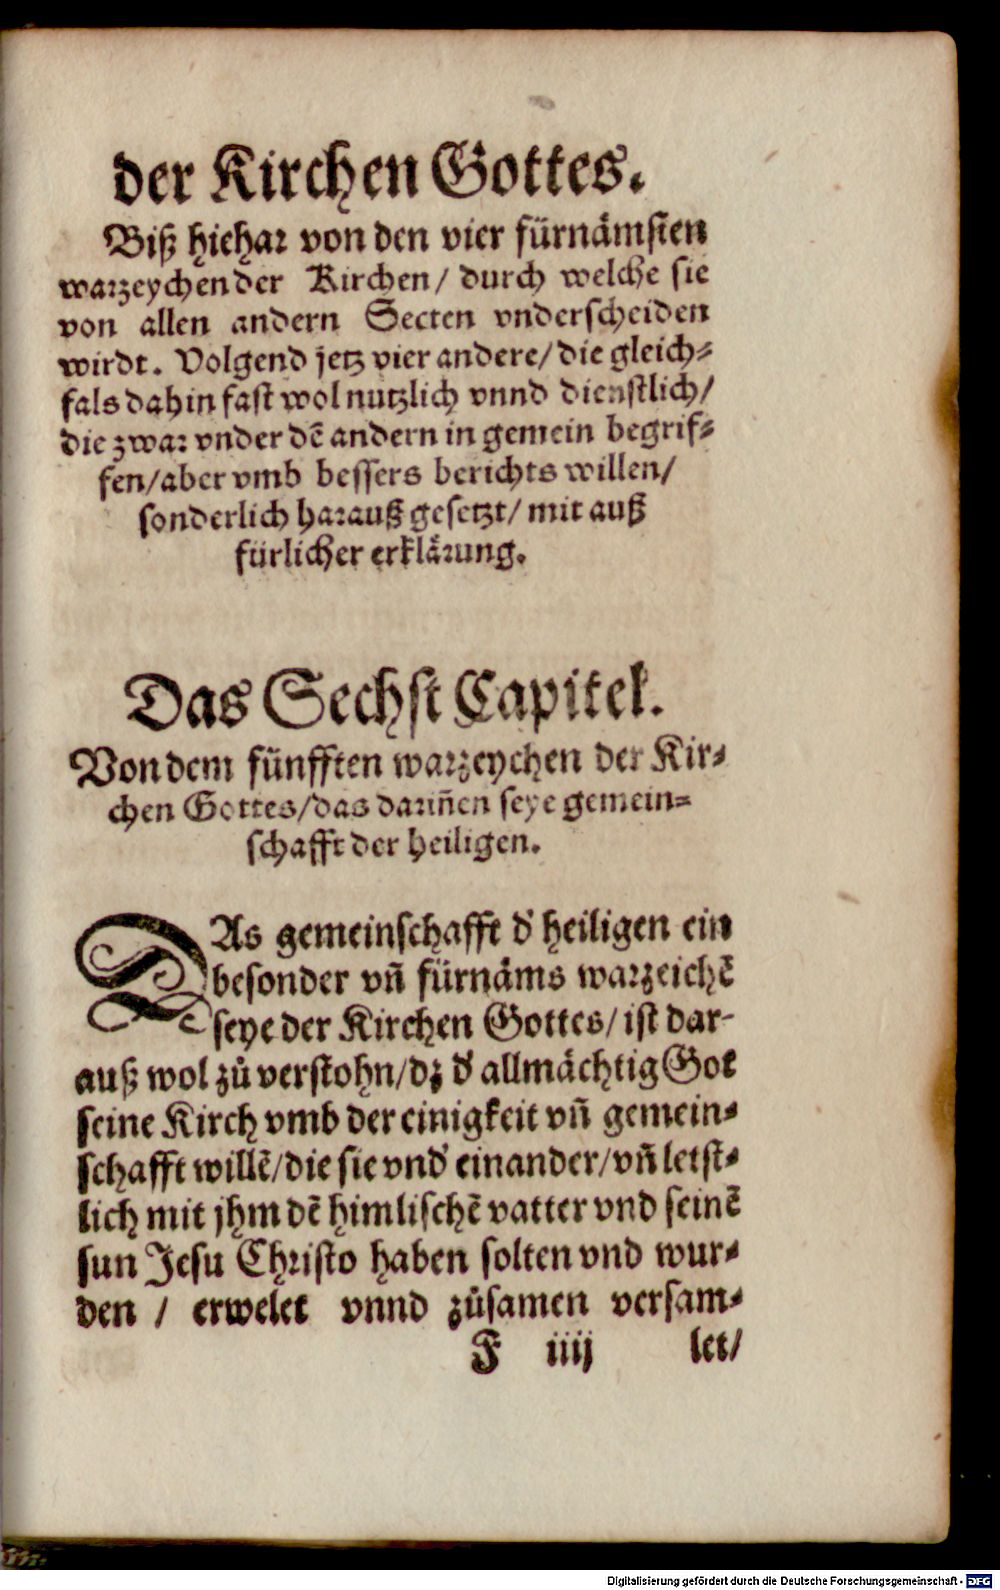 der Kirchen Gottes.
Biß hiehar von den vier fürnämsten
warzeychen der Kirchen/ durch welche sie
von allen andern Secten vnderscheiden
wirdt. Volgend jetz vier andere/ die gleich⸗
fals dahin fast wol nutzlich vnnd dienstlich/
die zwar vnder dē andern in gemein begrif⸗
fen/ aber vmb bessers berichts willen/
sonderlich harauß gesetzt/ mit auß
fürlicher erklärung.
Das Sechst Capitel.
Von dem fünfften warzeychen der Kir⸗
chen Gottes/ das dariñen seye gemein⸗
schafft der heiligen.
DAs gemeinschafft d' heiligen ein
besonder vñ fürnäms warzeichē
seye der Kirchen Gottes/ ist dar-
auß wol zů verstohn/ dz d' allmächtig Got
seine Kirch vmb der einigkeit vñ gemein⸗
schafft willē/ die sie vnd' einander/ vñ letst⸗
lich mit jhm dē himlischē vatter vnd seinē
sun Jesu Christo haben solten vnd wur⸗
den / erwelet vnnd zůsamen versam⸗
F iiij let/
Digitalisierung gefördert durch die Deutsche Forschungsgemeinschaft - DFG